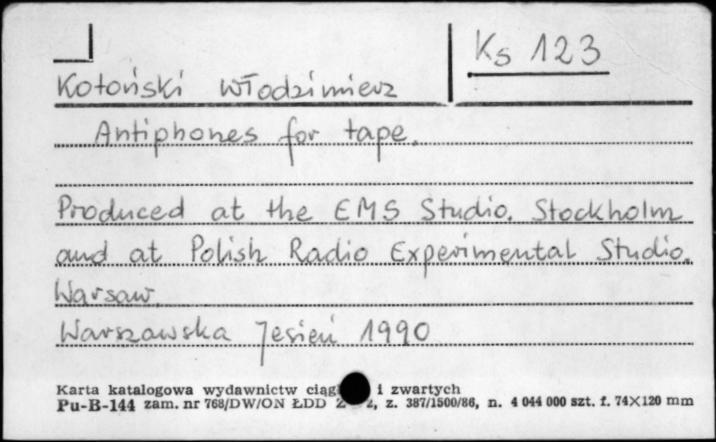 Ks 123
Kotoński Włodzimierz
Antiphones for tape.
Produced at the EMS Studio. Stockholm
and at Polish Radio Experimental Studio.
Warsaw.
Warszawska Jesień 1990
Karta katalogowa wydawnictw i zwartych
Pu-B-144 zam. nr 768/DW/ON ŁDD z. 387/1500/86, n. 4 044 000 szt. f. 74×120 mm